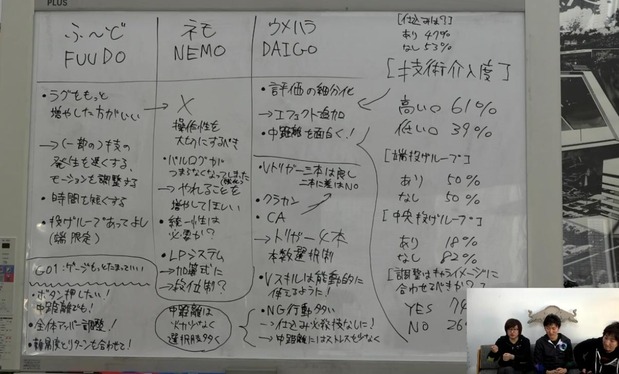 PLUS
ふ〜ど
FUUDO
・ラグをもっと
増やした方がいい
→(一部の)技の
発生を遅くする、
モーションを調整する
・時間を短くする
・投げループあってよし
(端限定)
GO1:ゲージもっとたまっていい
・ボタン押したい!
中距離でも!
・全体アッパー調整!
・難易度とリターンを合わせて!
ネモ
NEMO
→ X
操作性を
大切にするべき
・バルログが
つまらなくなってしまった
→やれることを
増やしてほしい
・統一性は
必要か?
・LPシステム
→加算式に
→段位制?
中距離は
火力少なく
選択肢多く
ウメハラ
DAIGO
・評価の細分化
→エフェクト追加
・中距離を面白く!
・Vトリガー三本は良し
二本に差はNO
・クラカン
・CA
→トリガー4本
本数選択制
・Vスキルは能動的に
使えるように!
・NG行動多い
→仕込み必殺技なしに!
→中距離にはストレスも少なく
[仕込みは?]
あり 47%
なし 53%
[技術介入度]
高い○ 61%
低い○ 39%
[端投げループ]
あり 50%
なし 50%
[中央投げループ]
あり 18%
なし 82%
[調整はキャライメージに
合わせるべきか?]
YES 74
NO 26